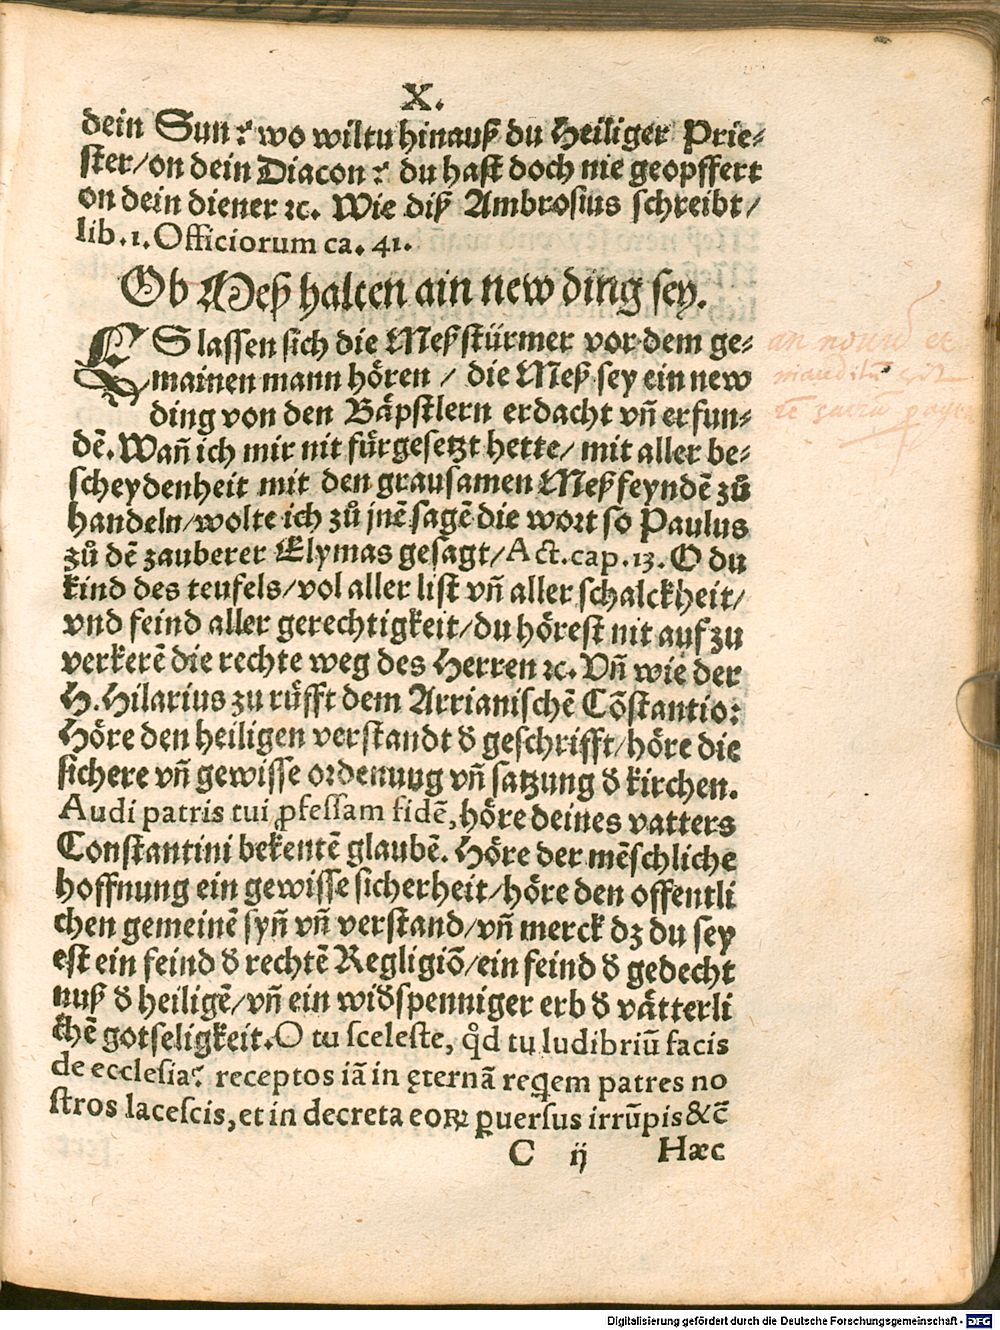 X.
dein Sun? wo wiltu hinauß du Heiliger Prie⸗
ster/on dein Diacon? du hast doch nie geopffert
on dein diener ꝛc. Wie diß Ambrosius schreibt/
lib.1.Officiorum ca. 41.
Ob Meß halten ain new ding sey.
ES lassen sich die Meßstürmer vor dem ge⸗
mainen mann hören / die Meß sey ein new
ding von den Bäpstlern erdacht vñ erfun⸗
dẽ. Wañ ich mir nit fürgesetzt hette/ mit aller be⸗
scheydenheit mit den grausamen Meßfeyndẽ zů
handeln/wolte ich zů jnẽ sagẽ die wort so Paulus
zů dẽ zauberer Elymas gesagt/Act.cap.13. O du
kind des teufels/vol aller list vñ aller schalckheit/
vnd feind aller gerechtigkeit/du hörest nit auf zu
verkerẽ die rechte weg des Herren ꝛc. Vñ wie der
H. Hilarius zu rüfft dem Arrianischẽ Cõstantio:
Höre den heiligen verstandt d̕ geschrifft/höre die
sichere vñ gewisse ordenung vñ satzung d̕ kirchen.
Audi patris tui ꝓfessam fidẽ, höre deines vatters
Constantini bekentẽ glaubẽ. Höre der mẽschliche
hoffnung ein gewisse sicherheit/höre den offentli
chen gemeinẽ syñ vñ verstand/vñ merck dz du sey
est ein feind d̕ rechtẽ Regligiõ/ein feind d̕ gedecht
nuß d̕ heiligẽ/vñ ein wid̕spenniger erb d̕ vätterli
chẽ gotseligkeit. O tu sceleste, qd̕ tu ludibriũ facis
de ecclesia? receptos iã in ęternã reqem patres no
stros lacescis, et in decreta eoꝝ ꝑuersus irrũpis &c̃
C ij Hæc
an nouũ et
Digitalisierung gefördert durch die Deutsche Forschungsgemeinschaft - DFG